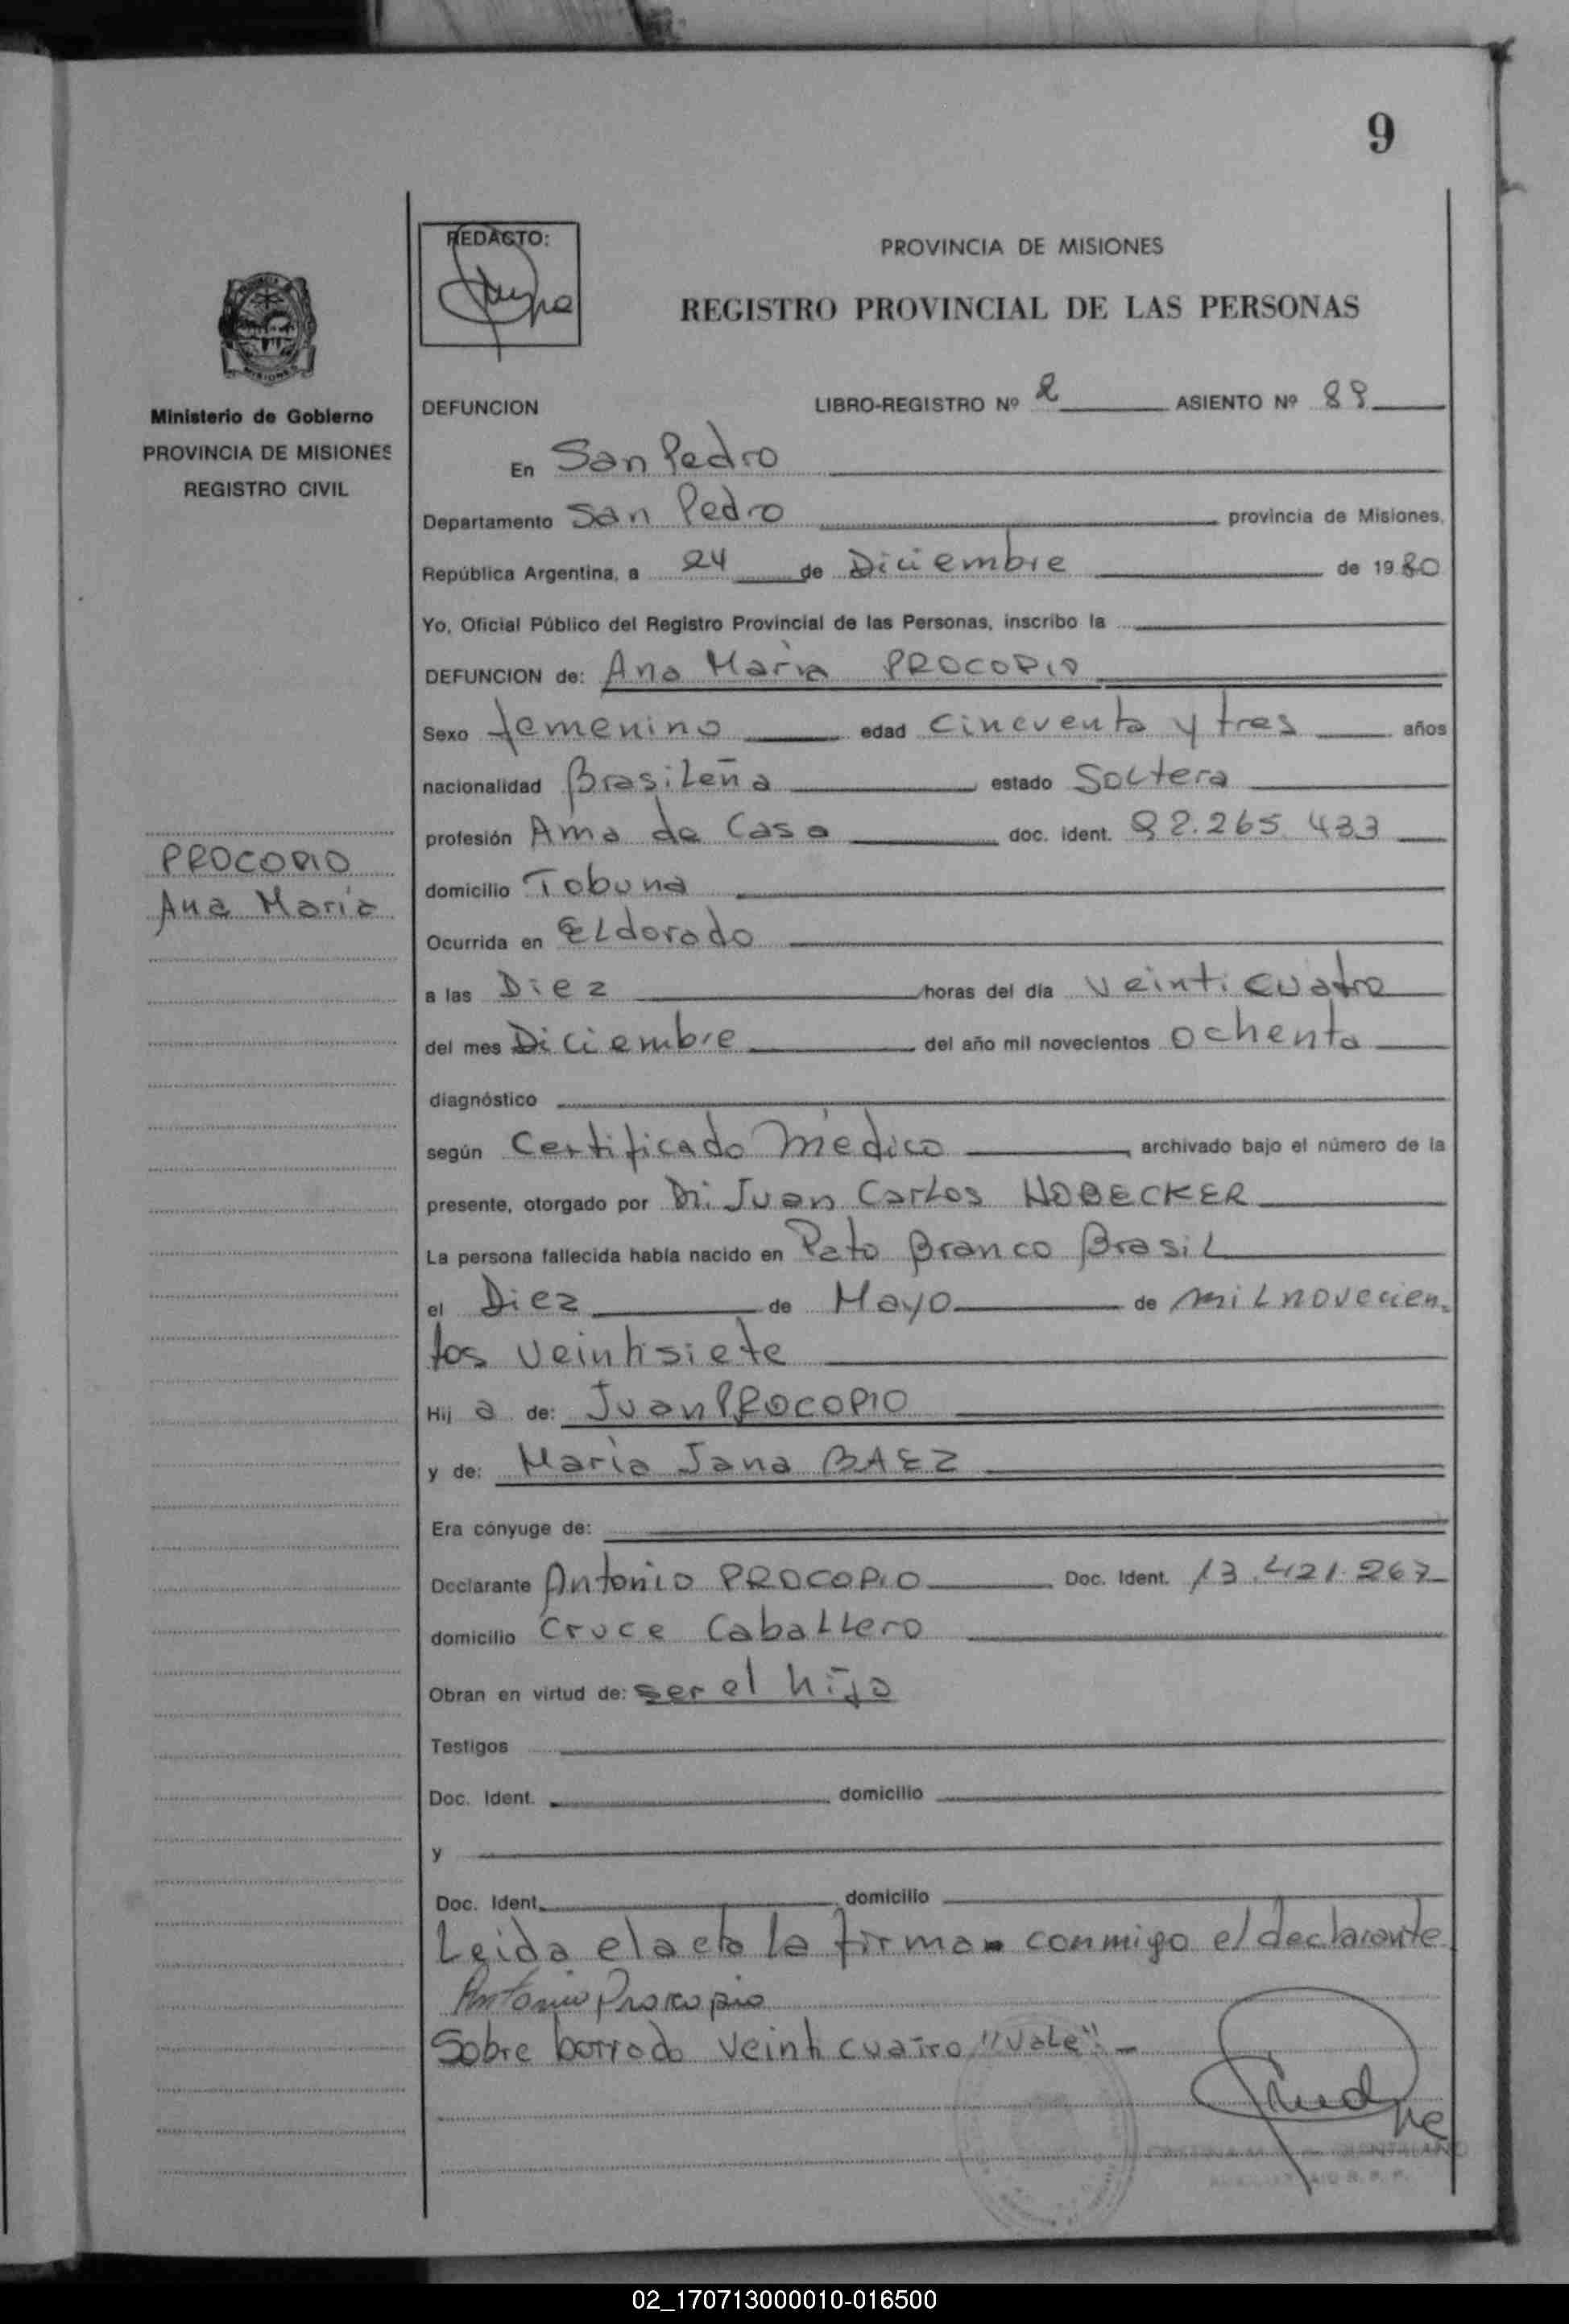 9
REDACTO:
PROVINCIA DE MISIONES
REGISTRO PROVINCIAL DE LAS PERSONAS
MISIONES
Ministerio de Gobierno
PROVINCIA DE MISIONES
REGISTRO CIVIL
PROCOPIO
Ana Maria
DEFUNCION LIBRO-REGISTRO Nº 2 ASIENTO Nº 89
En San Pedro
Departamento San Pedro provincia de Misiones,
República Argentina, a 24 de Diciembre de 1980
Yo, Oficial Público del Registro Provincial de las Personas, inscribo la
DEFUNCION de: Ana Maria PROCOPIO
Sexo femenino edad cincuenta y tres años
nacionalidad Brasileña estado Soltera
profesión Ama de Casa doc. ident. 92.265.433
domicilio Tobuna
Ocurrida en Eldorado
a las Diez horas del día veinticuatro
del mes Diciembre del año mil novecientos ochenta
diagnóstico
según Certificado Médico, archivado bajo el número de la
presente, otorgado por Dr. Juan Carlos HOBECKER
La persona fallecida había nacido en Pato Branco Brasil
el Diez de Mayo de mil novecien-
tos veintisiete
Hij a de: Juan PROCOPIO
y de: María Jana BAEZ
Era cónyuge de:
Declarante Antonio PROCOPIO Doc. Ident. 13.421.267
domicilio Cruce Caballero
Obran en virtud de: ser el hijo
Testigos
Doc. Ident. domicilio
y
Doc. Ident. domicilio
Leida el acta la firma conmigo el declarante
Antonio Procopio
Sobre borrado veinticuatro "Vale".-
02_170713000010-016500